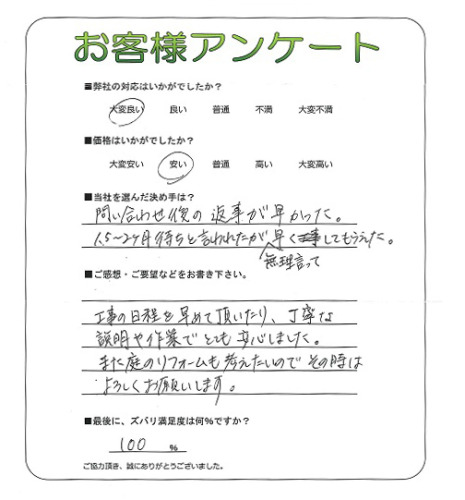 お客様アンケート
■弊社の対応はいかがでしたか?
大変良い 良い 普通 不満 大変不満
■価格はいかがでしたか?
大変安い 安い 普通 高い 大変高い
■当社を選んだ決め手は?
問い合わせ後の返事が早かった。
1.5~2ヶ月待ちと言われたが早くしてもらえた。
無理言って
■ご感想・ご要望などをお書き下さい。
工事の日程を早めて頂いたり、丁寧な
説明や作業でとても安心しました。
また庭のリフォームも考えたいのでその時は
よろしくお願いします。
■最後に、ズバリ満足度は何%ですか?
100 %
ご協力頂き、誠にありがとうございました。